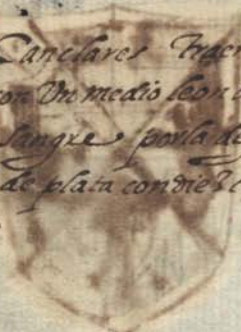 Canclares traen
con Un medio leon
sangre por la de
de plata con diez